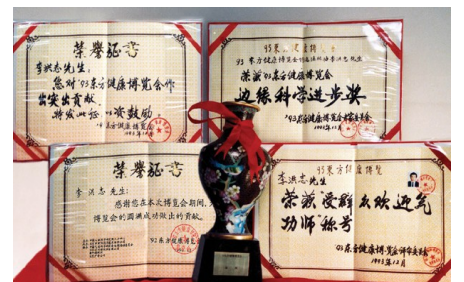 荣誉证书
李洪志先生:
您对'93东方健康博览会作
出突出贡献,
特发此证 以资鼓励
'93东方健康博览会
1993年12月
93东方健康博览
荣获'93东方健康博览会
边缘科学进步奖
'93东方健康博览会
1993年12月
荣誉证书
李洪志先生:
感谢您在本次博览会期间,
博览会的圆满成功做出的贡献。
'93东方健康博览会
93东方健康博览
李洪志先生
荣获"受群众欢迎气
功师"称号
'93东方健康博览会
1993年12月